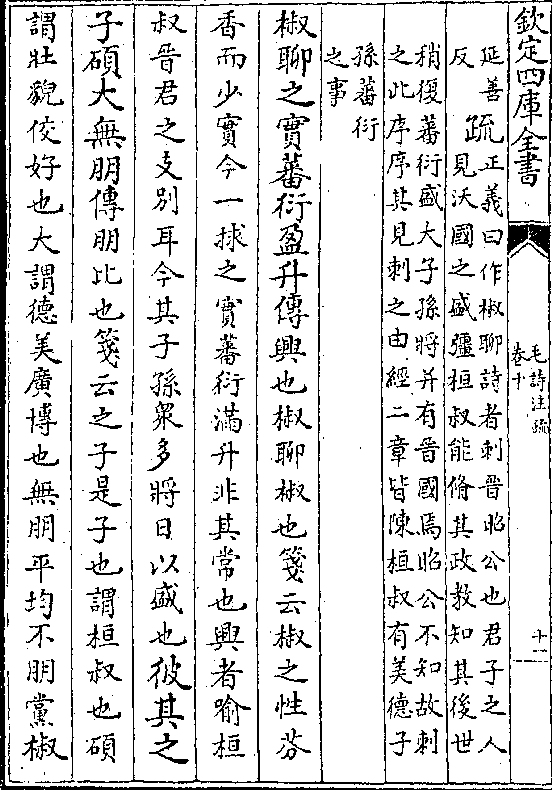 欽定四庫全書
毛詩注疏
卷十
十二
延善
反
疏
正義曰作椒聊詩者刺晉昭公也君子之人
見沃國之盛彊桓叔能脩其政教知其後世
稍復蕃衍盛大子孫將并有晉國焉昭公不知故刺
之此序序其見刺之由經二章皆陳桓叔有美德子
孫蕃衍
之事
椒聊之實蕃衍盈升傳興也椒聊椒也箋云椒之性芬
香而少實今一捄之實蕃衍滿升非其常也興者喻桓
叔晉君之支別耳今其子孫衆多將日以盛也彼其之
子碩大無朋傳朋比也箋云之子是子也謂桓叔也碩
謂壯貌佼好也大謂德美廣博也無朋平均不朋黨椒